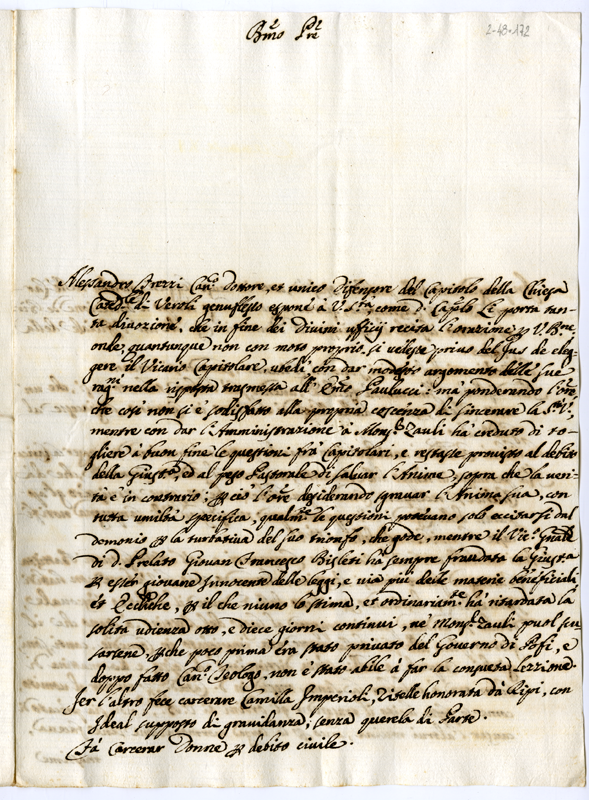 Bmo Pre
2-48-172
Alessandro Brezzi Can.co Dottore, et unico Difensore del Capitolo della Chiesa
Cated.le di Veroli genuflesso espone à V. S.tà, come d.o Cap.lo Le porta tan-
ta divozione, che in fine dei Divini ufficij recita l'orazione p V. B.ne
onde, quantunque non con moto proprio, si vedesse privo del Jus de eleg-
gere il Vicario Capitolare, ubedì con dar modesto argomento delle sue
ragni nella risposta trasmessa all' Emo Paulucci: mà ponderando l'ore
che così non si è sodisfatto alla propria coscenza di sincerare la S.tà V.
mentre con dar l'Amministrazione à Mons.r Zauli hà creduto di to-
gliere à buon fine le questioni frà Capitolari, e restasse provisto al debito
della Giust.a, ed al peso Pastorale di salvar l'Anime, sopra che la veri-
tà è in contrario; p ciò l'ore desiderando sgravar l'Anima sua, con
tutta umiltà specifica, qualm.te le questioni potevano solo eccitarsi dal
demonio p la turbativa del suo trionfo, che gode, mentre il Vic.o Gnale
di d.o Prelato Giovan Francesco Bisleti hà sempre fraudata la Giust.a
p esser giovane Innocente delle leggi, e via più delle materie beneficiali
et Eccl.che, p il che niuno lo stima, et ordinariam.te hà ritardata la
solita udienza otto, e diece giorni continui, nè Mons.r Zauli puol scu-
sarsene, p che poco prima era stato privato del Governo di Pofi, e
doppo fatto Can.co Teologo, non è stato abile à far la consueta lezzione.
Jer l'altro fece carcerare Camilla Imperioli, Zitelle honorata da Ripi, con
Ideal supposto di gravidanza, senza querela di Parte.
Fà carcerar Donne p debito civile.